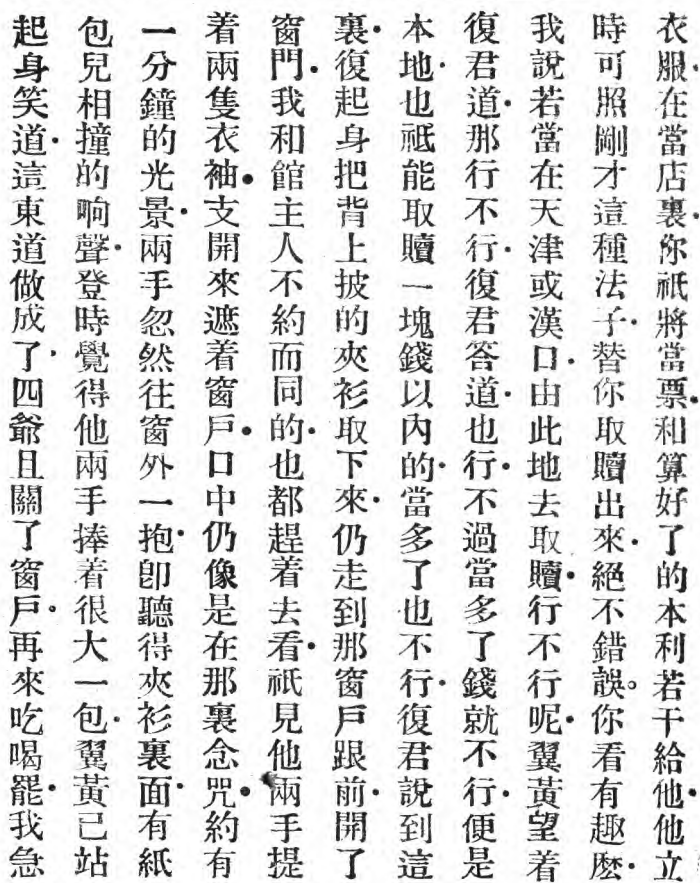 衣服．在當店裏．你祇將當票．和算好了的本利若干給他．他立
時可照剛才這種法子．替你取贖出來．絕不錯誤。你看有趣麽．
我說若當在天津或漢口．由此地去取贖．行不行呢．翼黃望着
復君道．那行不行．復君答道．也行．不過當多了錢就不行．便是
本地．也祇能取贖一塊錢以內的．當多了也不行．復君說到這
裏．復起身把背上披的夾衫取下來．仍走到那窗戶跟前．開了
窗門．我和館主人不約而同的．也都趕着去看．祇見他兩手提
着兩隻衣袖．支開來遮着窗戶．口中仍像是在那裏念咒．約有
一分鐘的光景．兩手忽然往窗外一抱．卽聽得夾衫裏面．有紙
包兒相撞的响聲．登時覺得他兩手捧着很大一包．翼黃已站
起身笑道．這東道做成了．四爺且關了窗戶。再來吃喝罷．我急